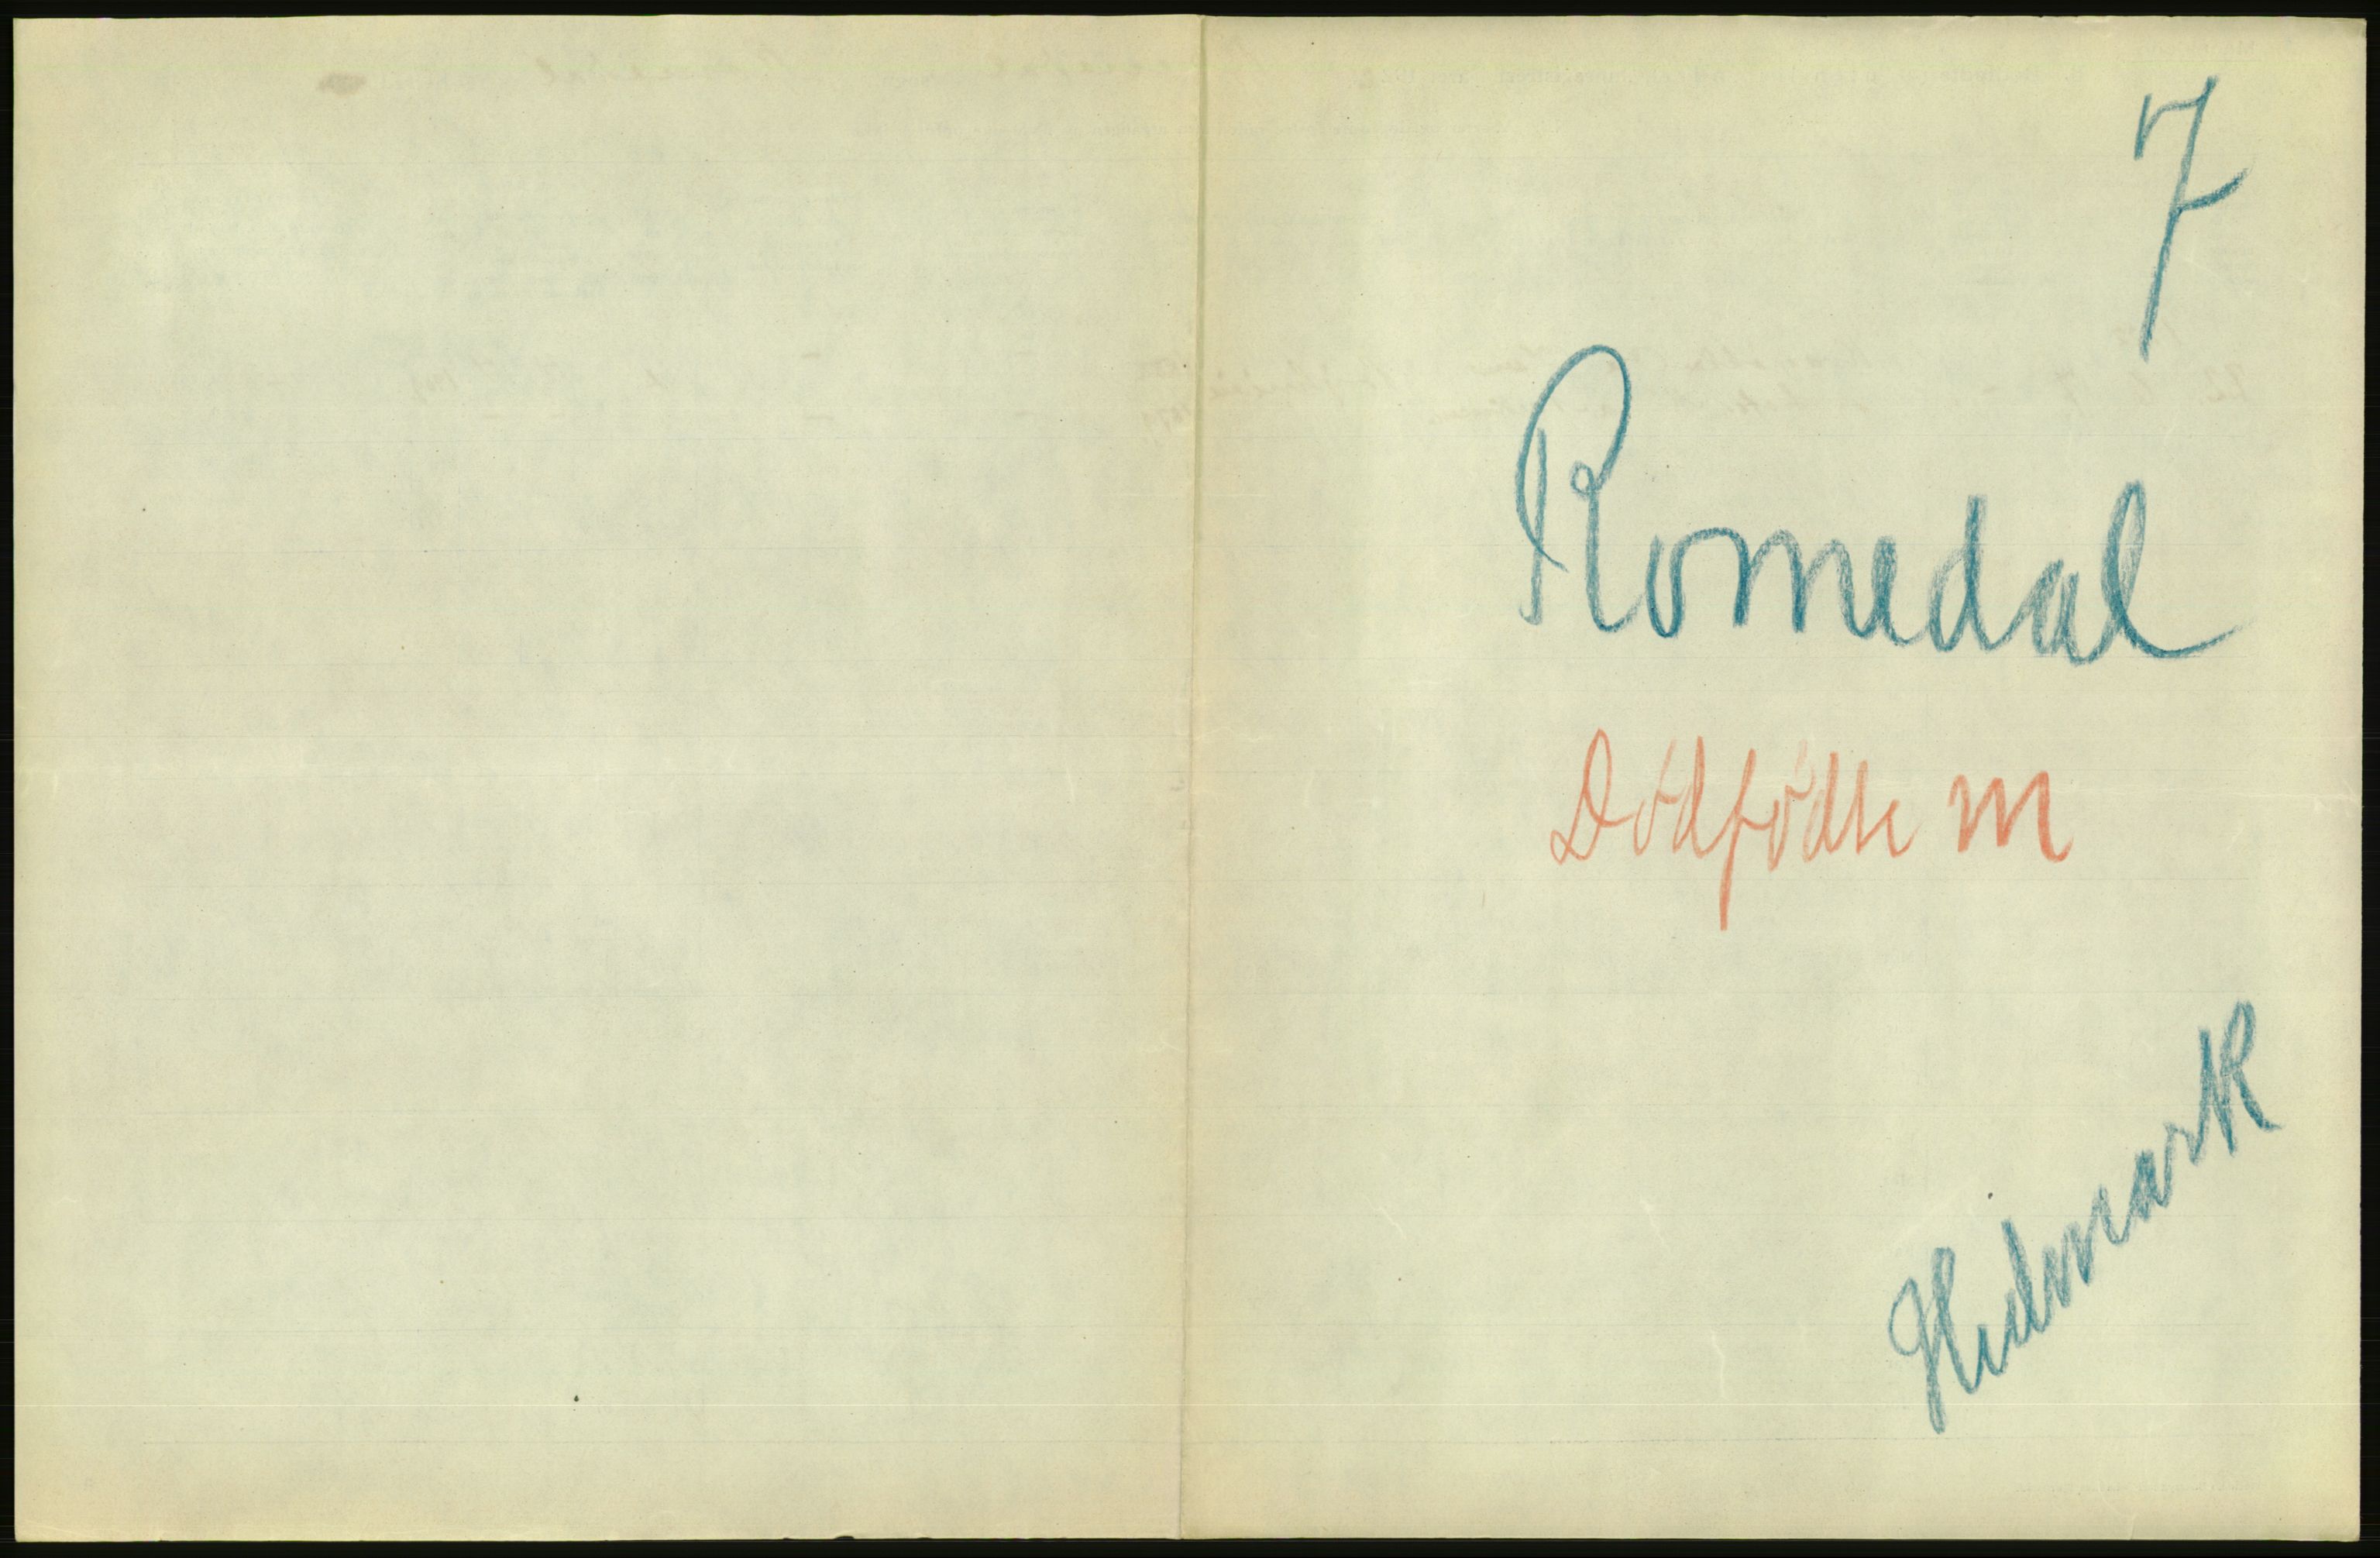 7
Romedal
Dødfødte m
Hedmark